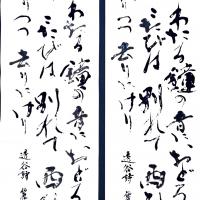 わたる鐘の音におどろ
こたびは別れて西
りつつ去りにけり
透谷詩
わたる鐘の音におどろ
こたびは別れて西
りつつ去りにけり
透谷詩